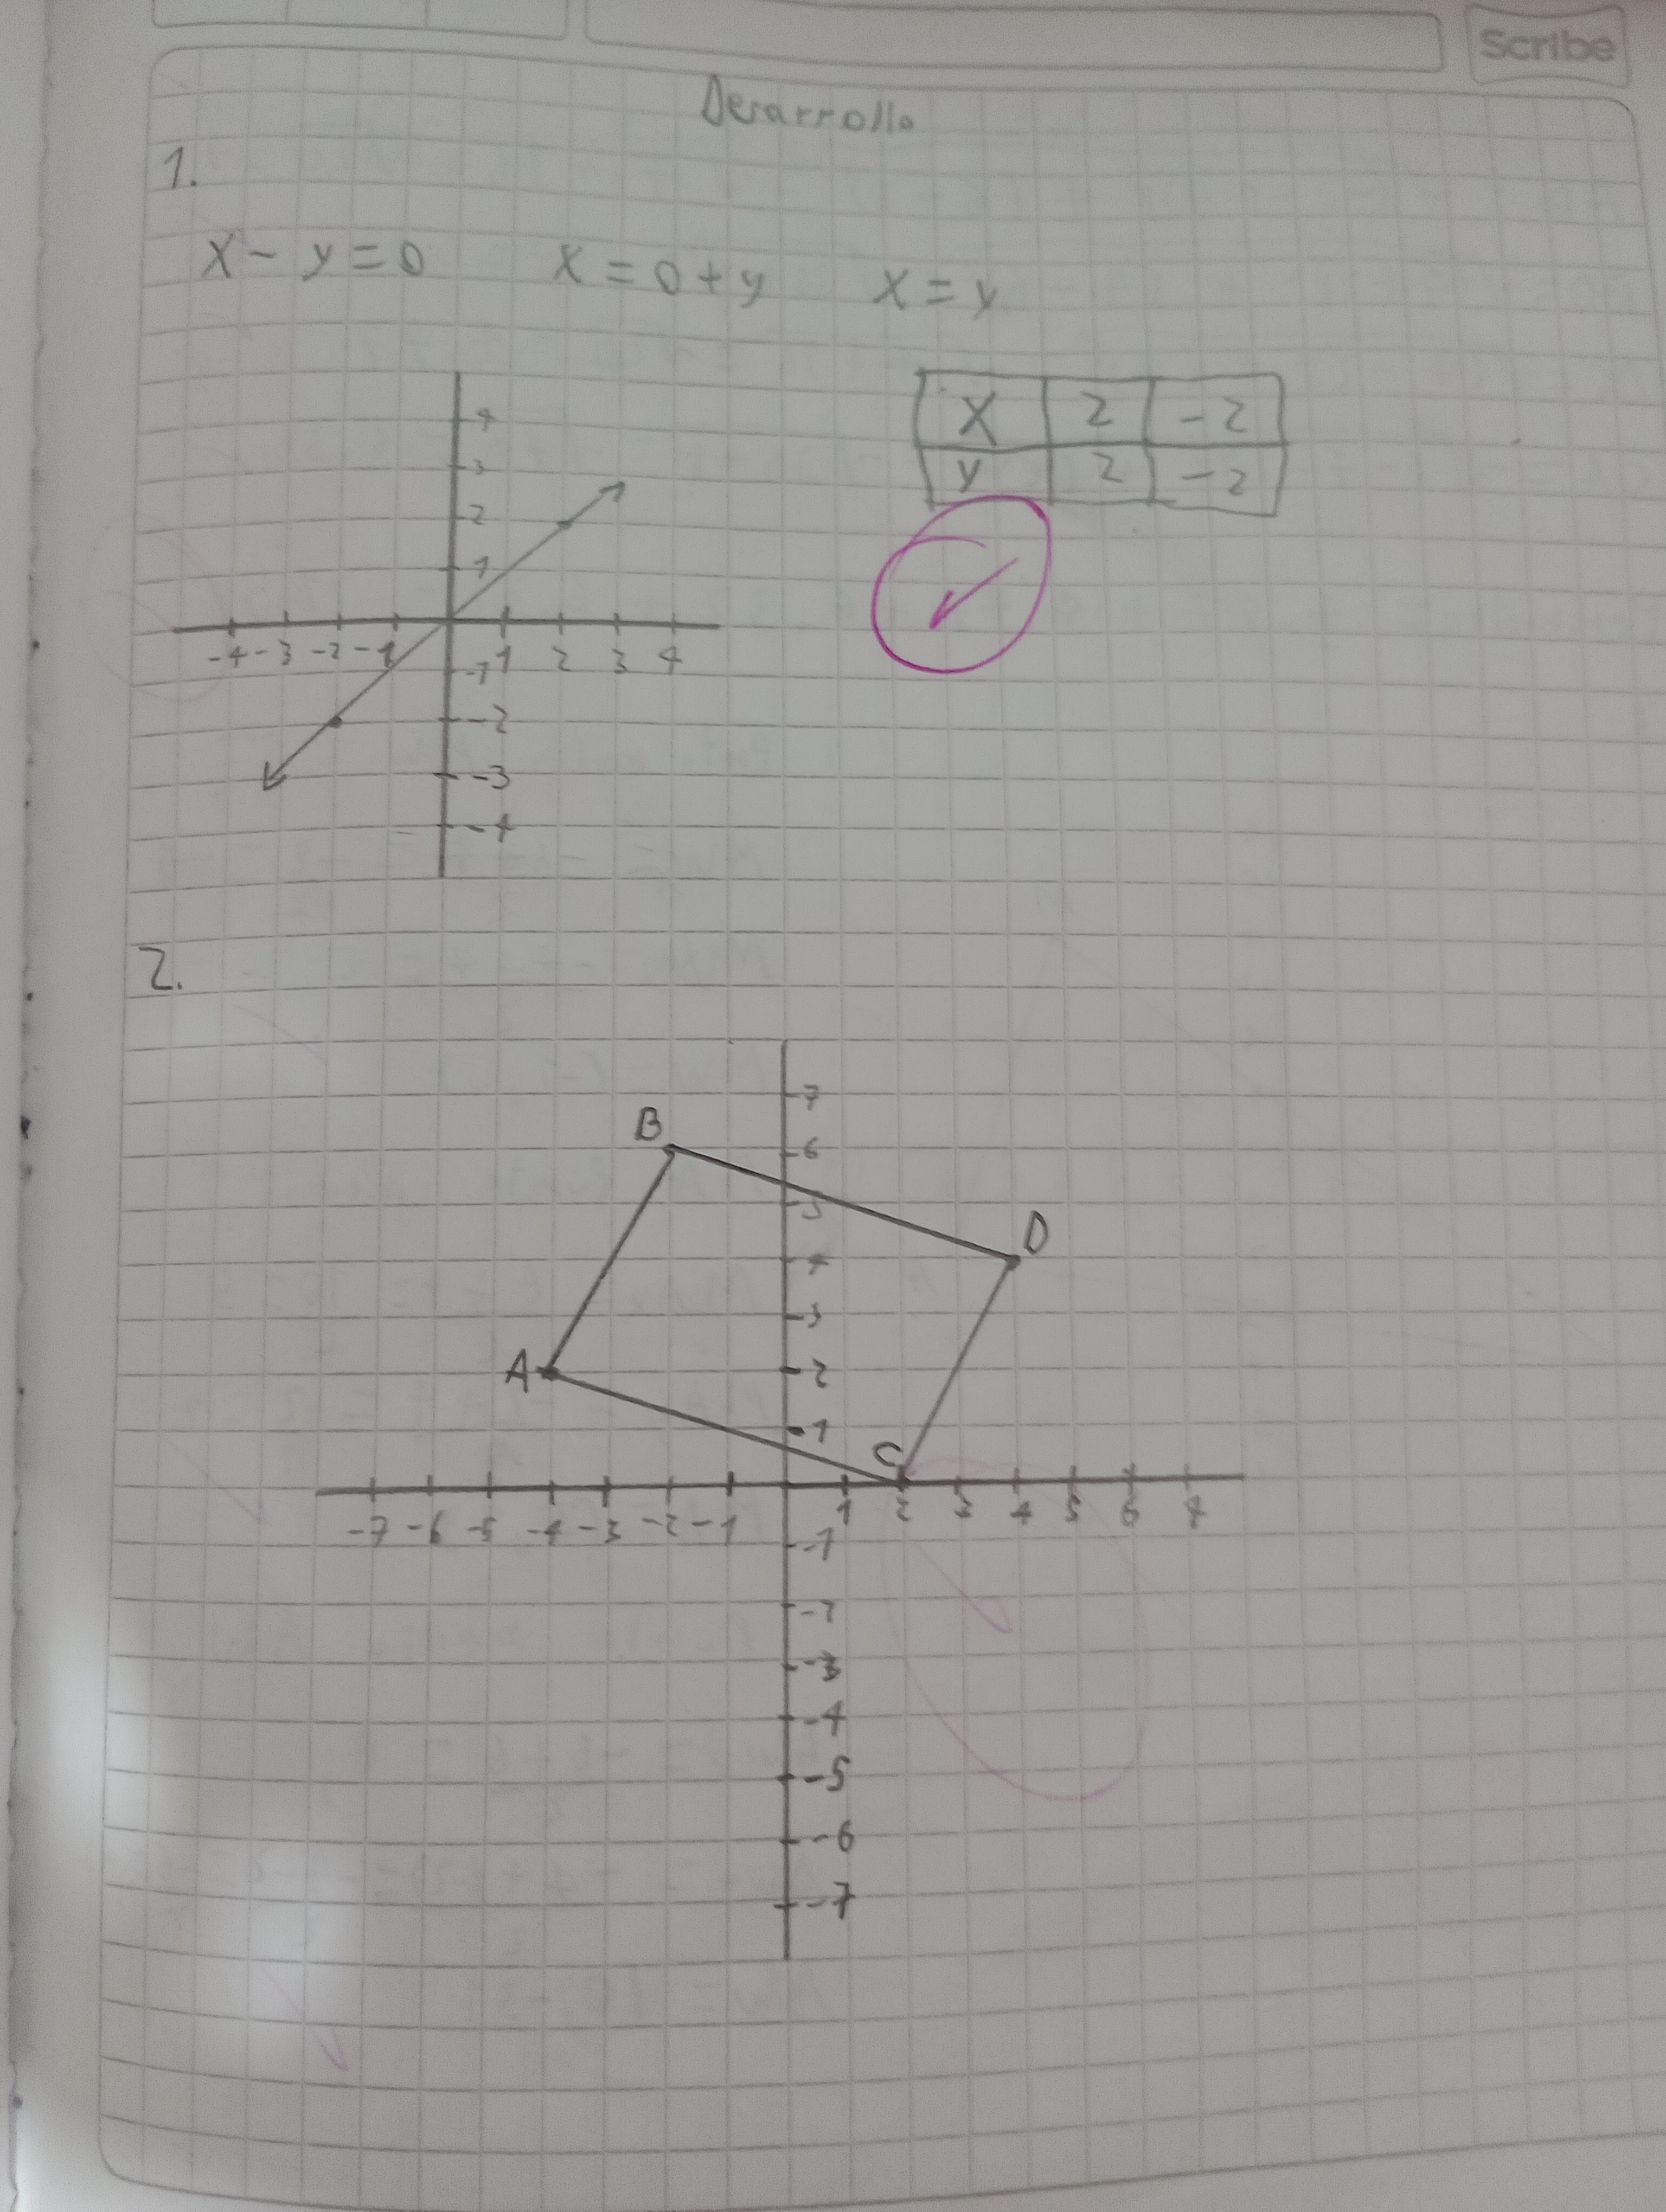 Scribe
Desarrollo
1.
x - y = 0 x = 0 + y x = y
X 2 -2
Y 2 -2
4
3
2
1
-4 -3 -2 -1 1 2 3 4
-1
-2
-3
-4
2.
7
B
6
5
D
4
3
A 2
1
C
-7 -6 -5 -4 -3 -2 -1 1 2 3 4 5 6 7
-1
-2
-3
-4
-5
-6
-7